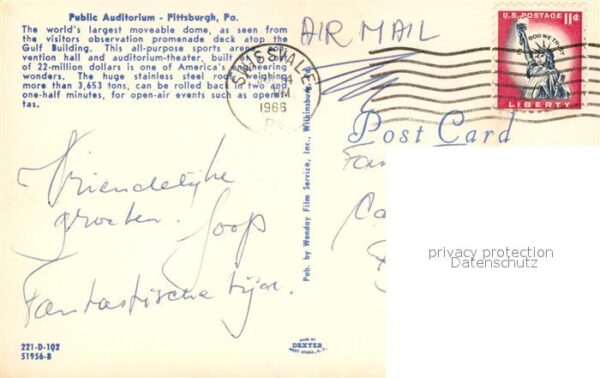 Public Auditorium - Pittsburgh, Pa.
The world's largest moveable dome, as seen from
the visitors observation promenade deck atop the
Gulf Building. This all-purpose sports arena, con-
vention hall and auditorium-theater, built at a
of 22-million dollars is one of America's engineering
wonders. The huge stainless steel roof, weighing
more than 3,653 tons, can be rolled back in two and
one-half minutes, for open-air events such as operet-
tas.
AIR MAIL
SWISSVALE
1966
U.S. POSTAGE 11¢
IN GOD WE TRUST
LIBERTY
Post Card
Vriendelijke
groeten. Joop
Fantastische tijd.
Fam
privacy protection
Datenschutz
Pub. by Wonday Film Service, Inc., Wilkinsburg, Pa.
221-D-102
51956-B
MADE BY
DEXTER
WEST NYACK, N.Y.